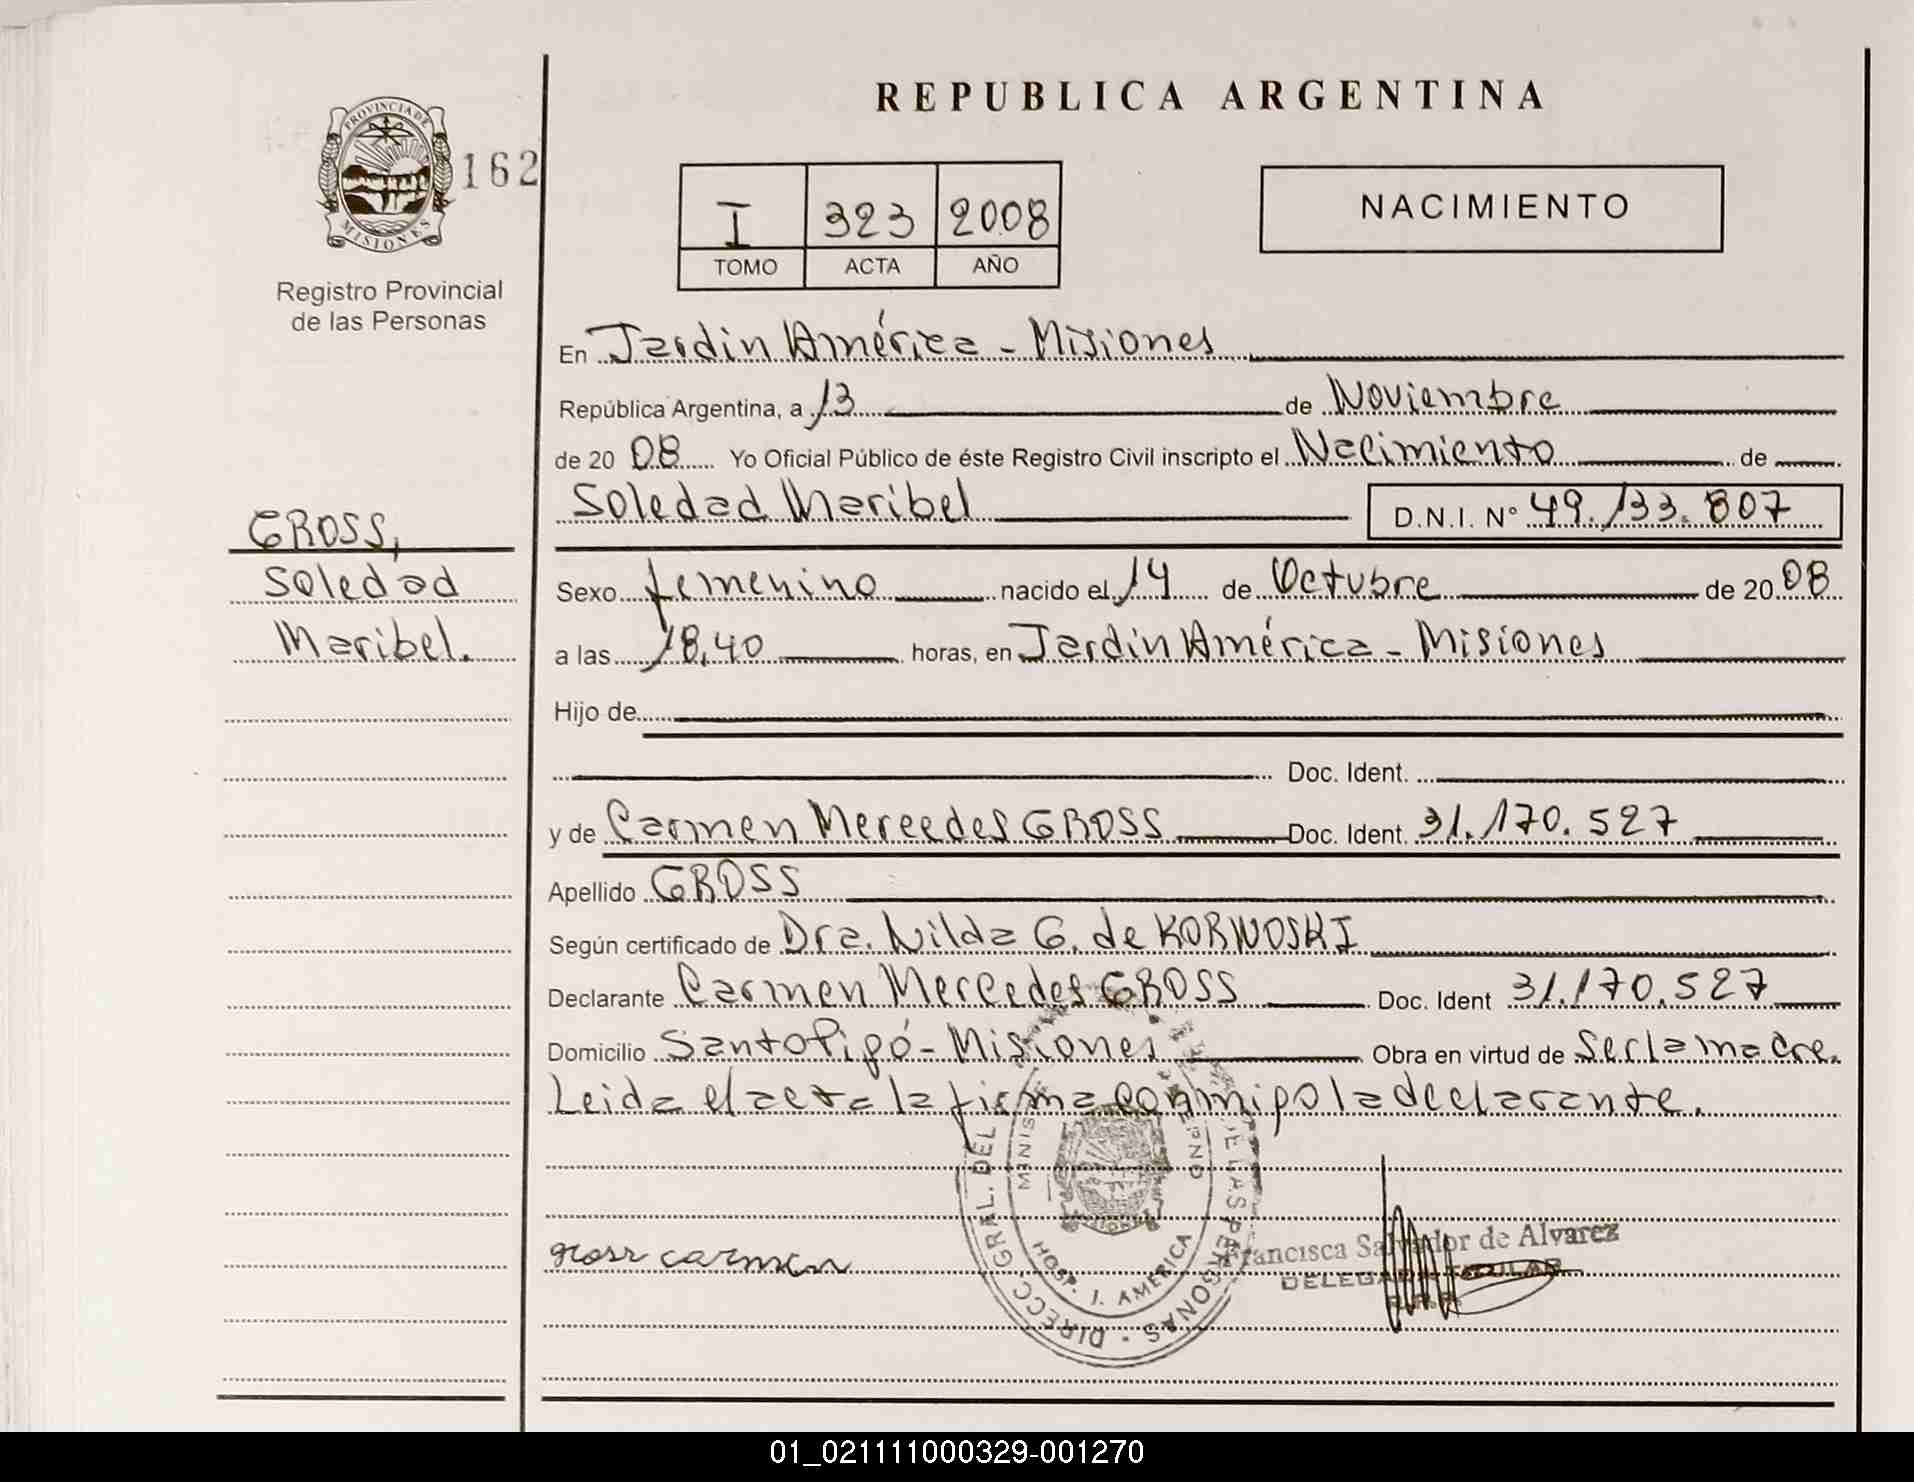 REPUBLICA ARGENTINA
PROVINCIA DE
MISIONES
162
Registro Provincial
de las Personas
I 323 2008
TOMO ACTA AÑO
NACIMIENTO
En Jardin América - Misiones
República Argentina, a 13 de Noviembre
de 20 08 Yo Oficial Público de éste Registro Civil inscripto el Nacimiento de
Soledad Maribel D.N.I. N° 49.133.807
GROSS,
Soledad
Maribel.
Sexo femenino nacido el 14 de Octubre de 20 08
a las 18,40 horas, en Jardin América - Misiones
Hijo de
Doc. Ident.
y de Carmen Mercedes GROSS Doc. Ident. 31.170.527
Apellido GROSS
Según certificado de Dra. Nilda G. de KORNOSKI
Declarante Carmen Mercedes GROSS Doc. Ident 31.170.527
Domicilio Santo Pipó - Misiones Obra en virtud de Ser la madre.
Leida el acta la firma conmigo la declarante.
DIRECC GRAL. DEL DE LAS PERSONAS
HOSP. J. AMERICA
gross carmen
Francisca Salvador de Alvarez
DELEGADA TITULAR
01_021111000329-001270